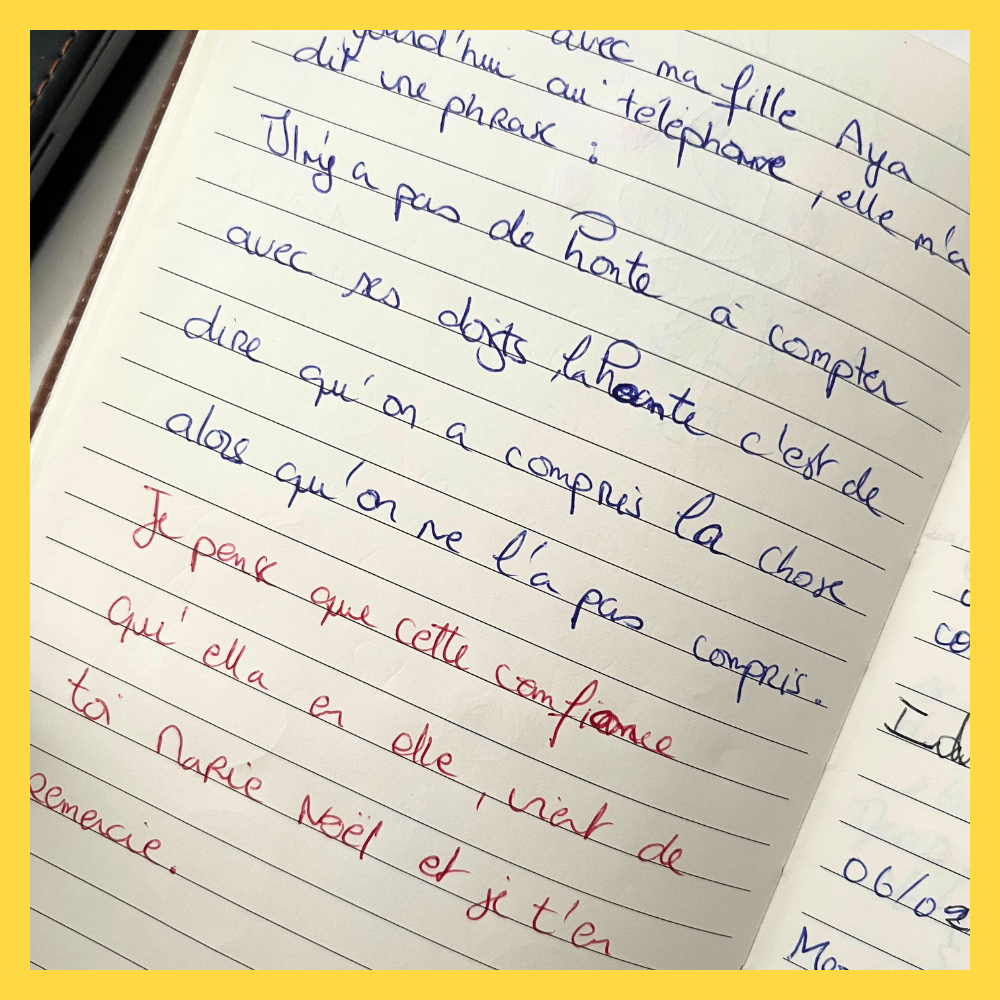 avec ma fille Aya
jourd'hui au téléphone, elle m'a
dit une phrase :
Il n'y a pas de honte à compter
avec ses doigts, la honte c'est de
dire qu'on a compris la chose
alors qu'on ne l'a pas compris.
Je pense que cette confiance
qu'ella en elle, vient de
toi Marie Noël et je t'en
remercie.
co
06/02